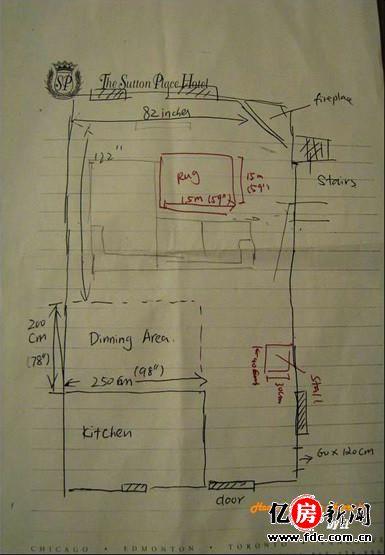 SP
The Sutton Place Hotel
fireplace
82 inches
122"
Rug
1.5m
(59")
1.5m (59")
Stairs
200
cm
(78")
Dinning Area.
250cm (98")
30cm
Stall
Kitchen
60 x 120cm
door
亿房新闻
www.fdc.com.cn
CHICAGO • EDMONTON • TORONTO